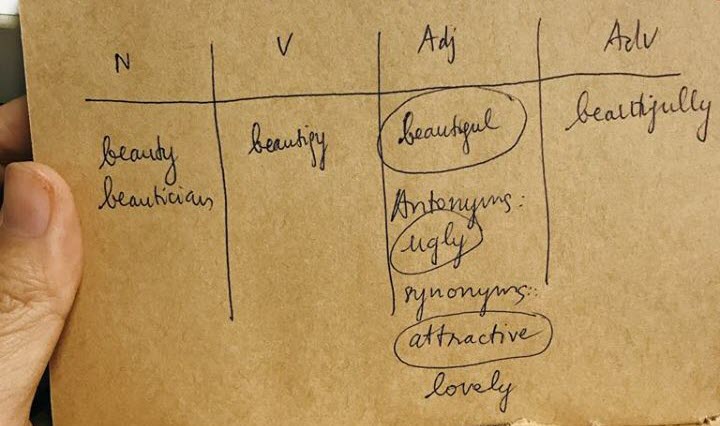 N V Adj Adv
beauty beautify beautiful beautifully
beautician
Antonyms:
ugly
synonyms:
attractive
lovely